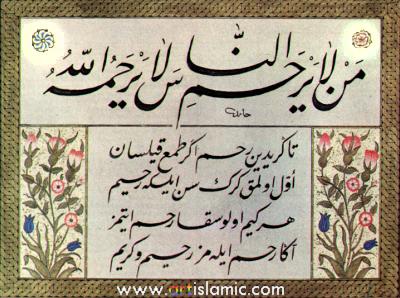 مَنْ لَا يَرْحَمِ النَّاسَ لَا يَرْحَمُهُ اللّٰهُ
تا كريدين رحم اكر طمع قيلسان
اوّل اولمق كرك سن ايله رحيم
هر كيم اولوسه رحم ايتمز
اكا رحم ايله مز رحيم و كريم
www.artislamic.com